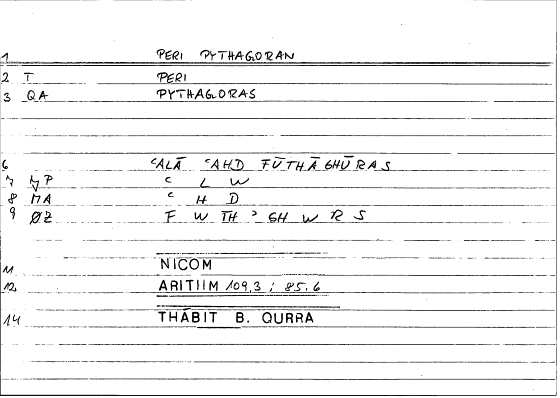 1 PERI PYTHAGORAN
2 T PERI
3 QA PYTHAGORAS
6 ʿALĀ ʿAHD FŪTHĀGHŪRAS
7 P ʿ L W
8 MA ʿ H D
9 ØZ F W TH ʾ GH W R S
11 NICOM
12 ARITIIM 109,3 ; 85.6
14 THĀBIT B. QURRA